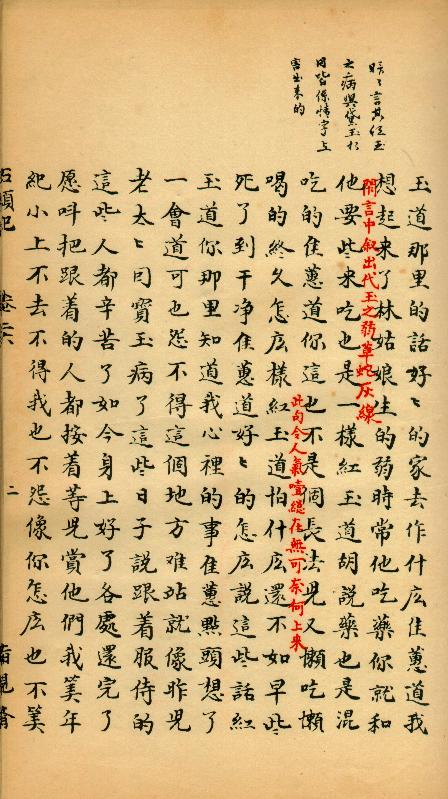 言其紅玉
之病與黛玉相
同皆係情字上
害出来的
玉道那里的話好〻的家去作什庅佳蕙道我
閑言中叙出代玉之弱草蛇灰線
想起来了林姑娘生的弱時常他吃藥你就和
他要些来吃也是一樣紅玉道胡說藥也是混
吃的佳蕙道你這也不是個長法兒又懶吃懶
此句令人氣噎總在無可奈何上来
喝的終久怎庅樣紅玉道怕什庅還不如早些
死了到干净佳蕙道好〻的怎庅説這些話紅
玉道你那里知道我心裡的事佳蕙點頭想了
一會道可也怨不得這個地方难站就像昨兒
老太〻因寶玉病了這些日子説跟着服侍的
這些人都辛苦了如今身上好了各處還完了
愿呌把跟着的人都按着等兒賞他們我筭年
紀小上不去不得我也不怨像你怎庅也不筭
石頭記
二
脂硯齋